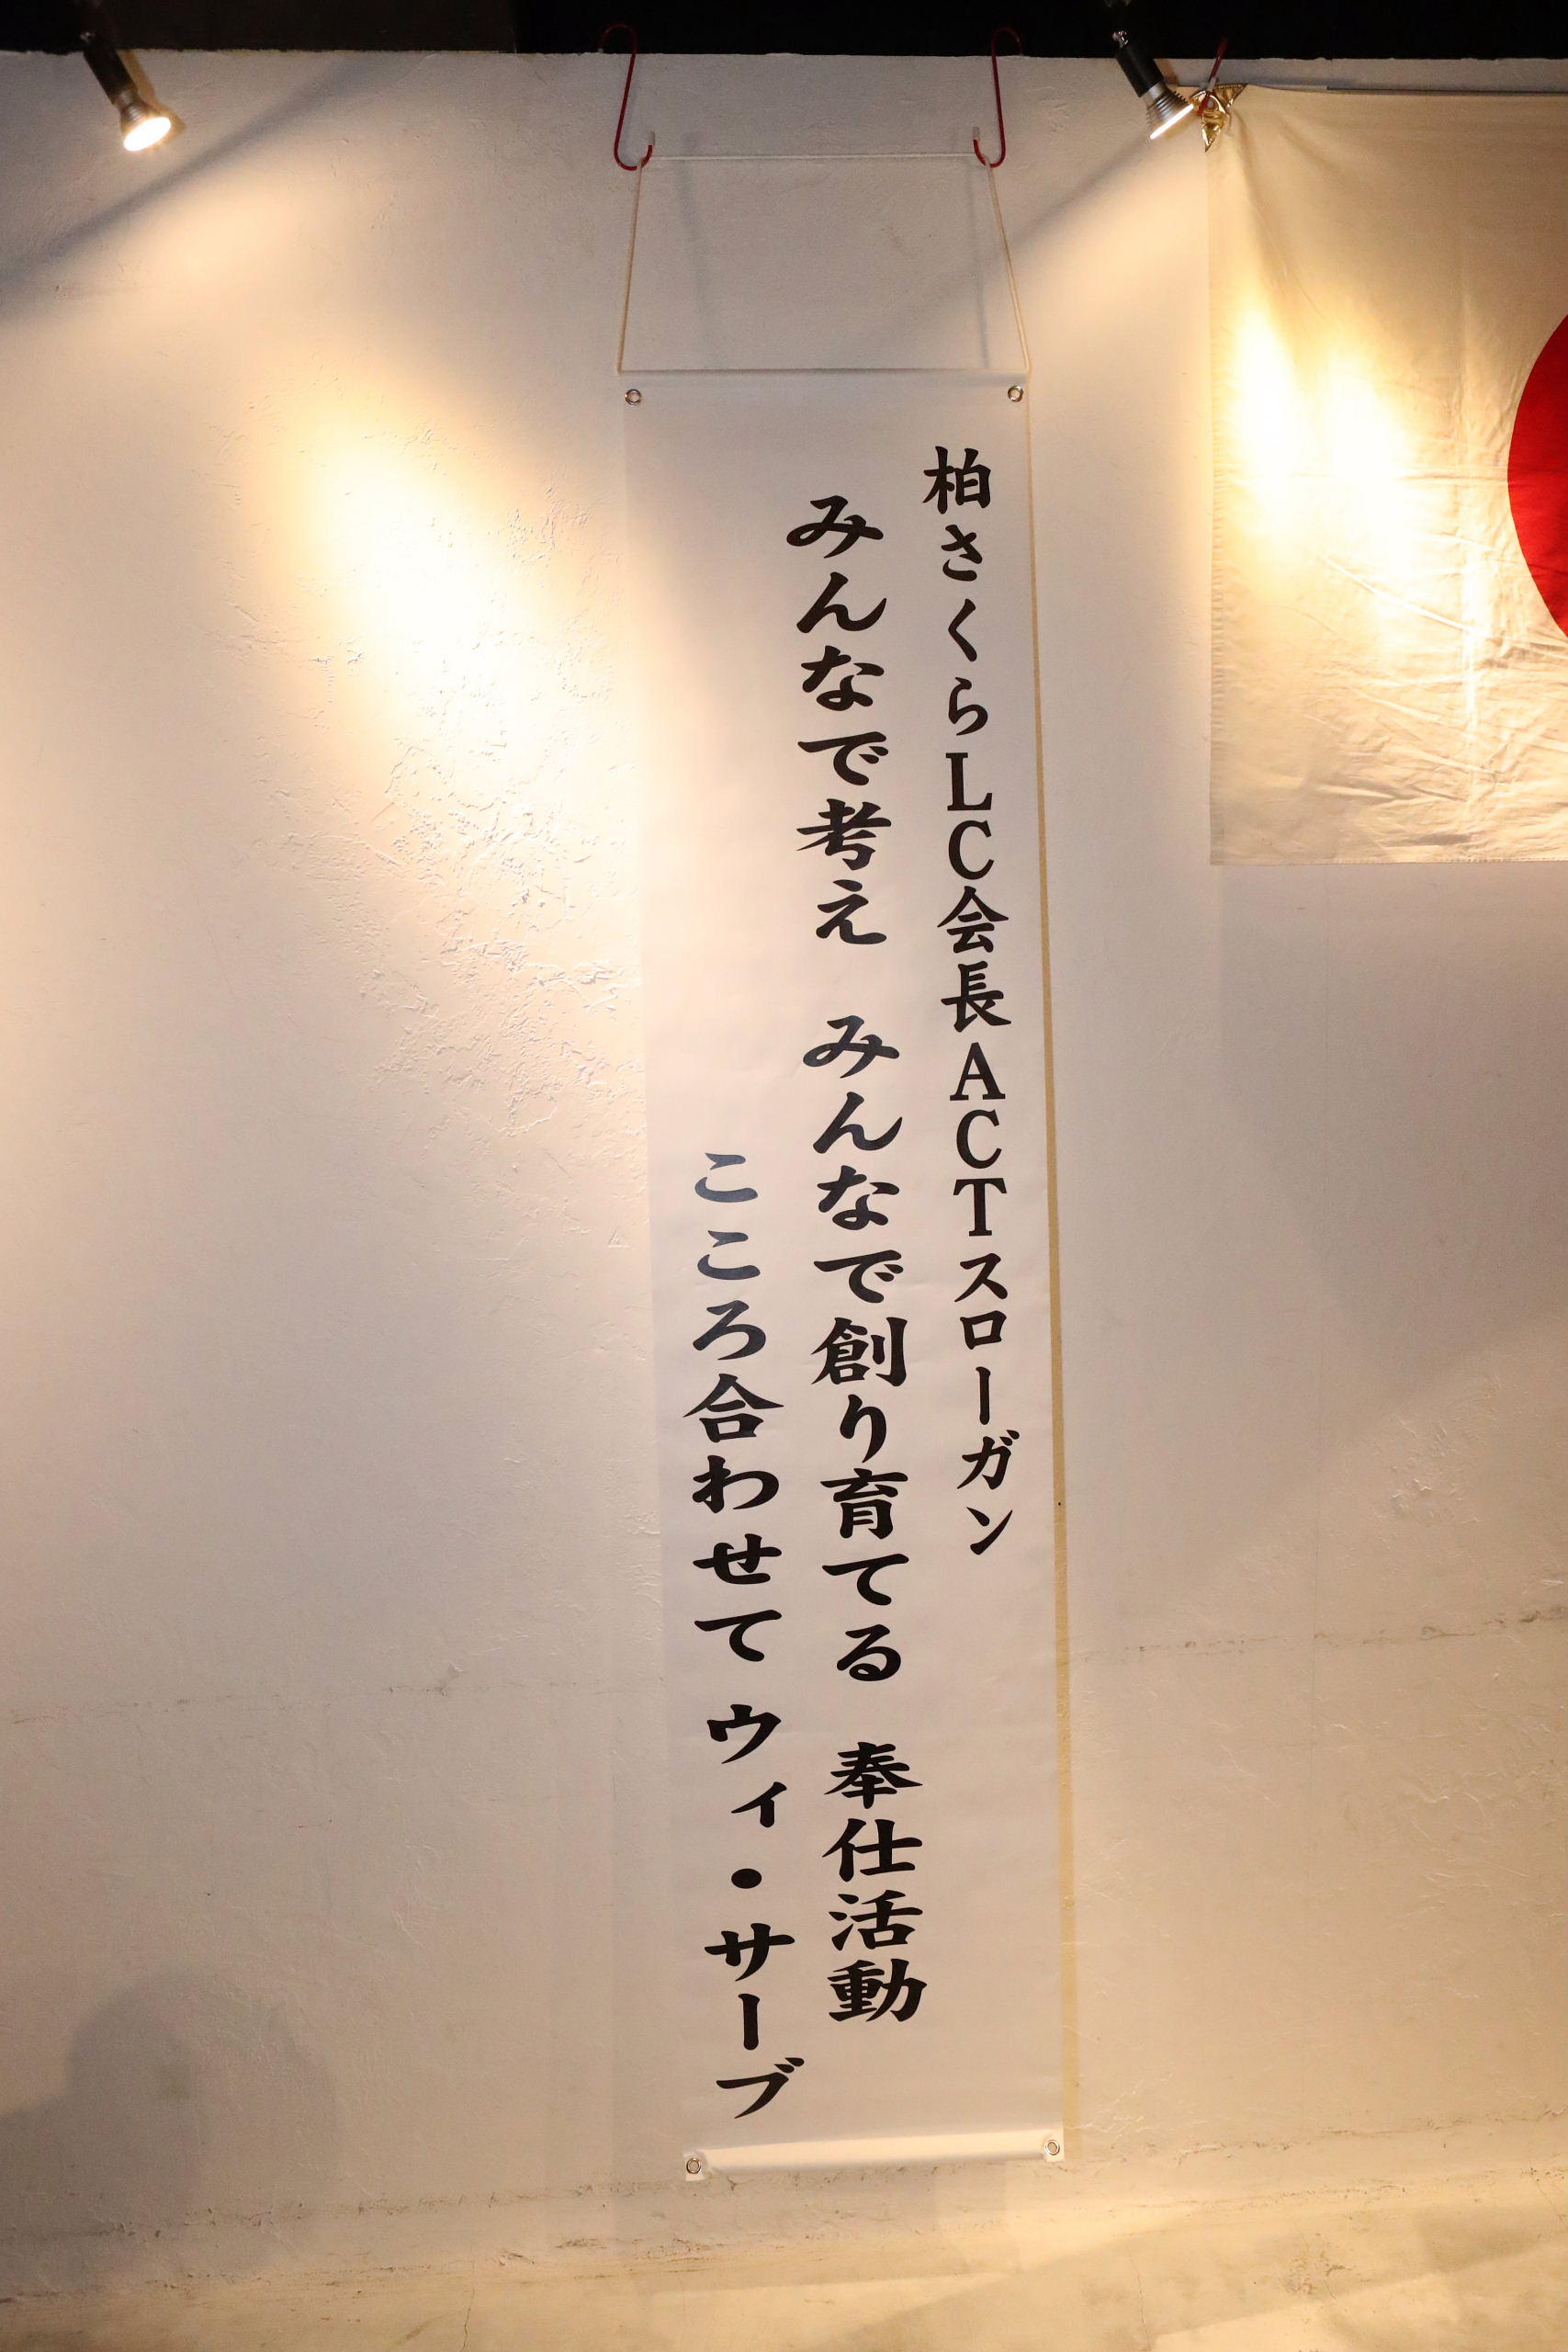 柏さくらLC会長ACTスローガン
みんなで考え　みんなで創り育てる　奉仕活動
こころ合わせて　ウィ・サーブ